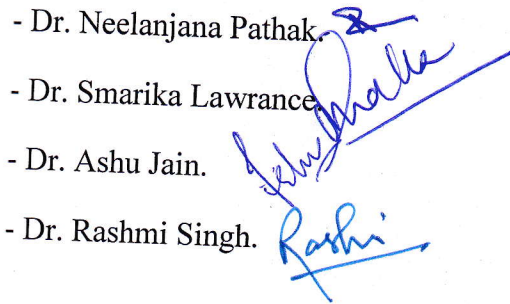 - Dr. Neelanjana Pathak.
- Dr. Smarika Lawrance.
- Dr. Ashu Jain.
- Dr. Rashmi Singh. Rashmi